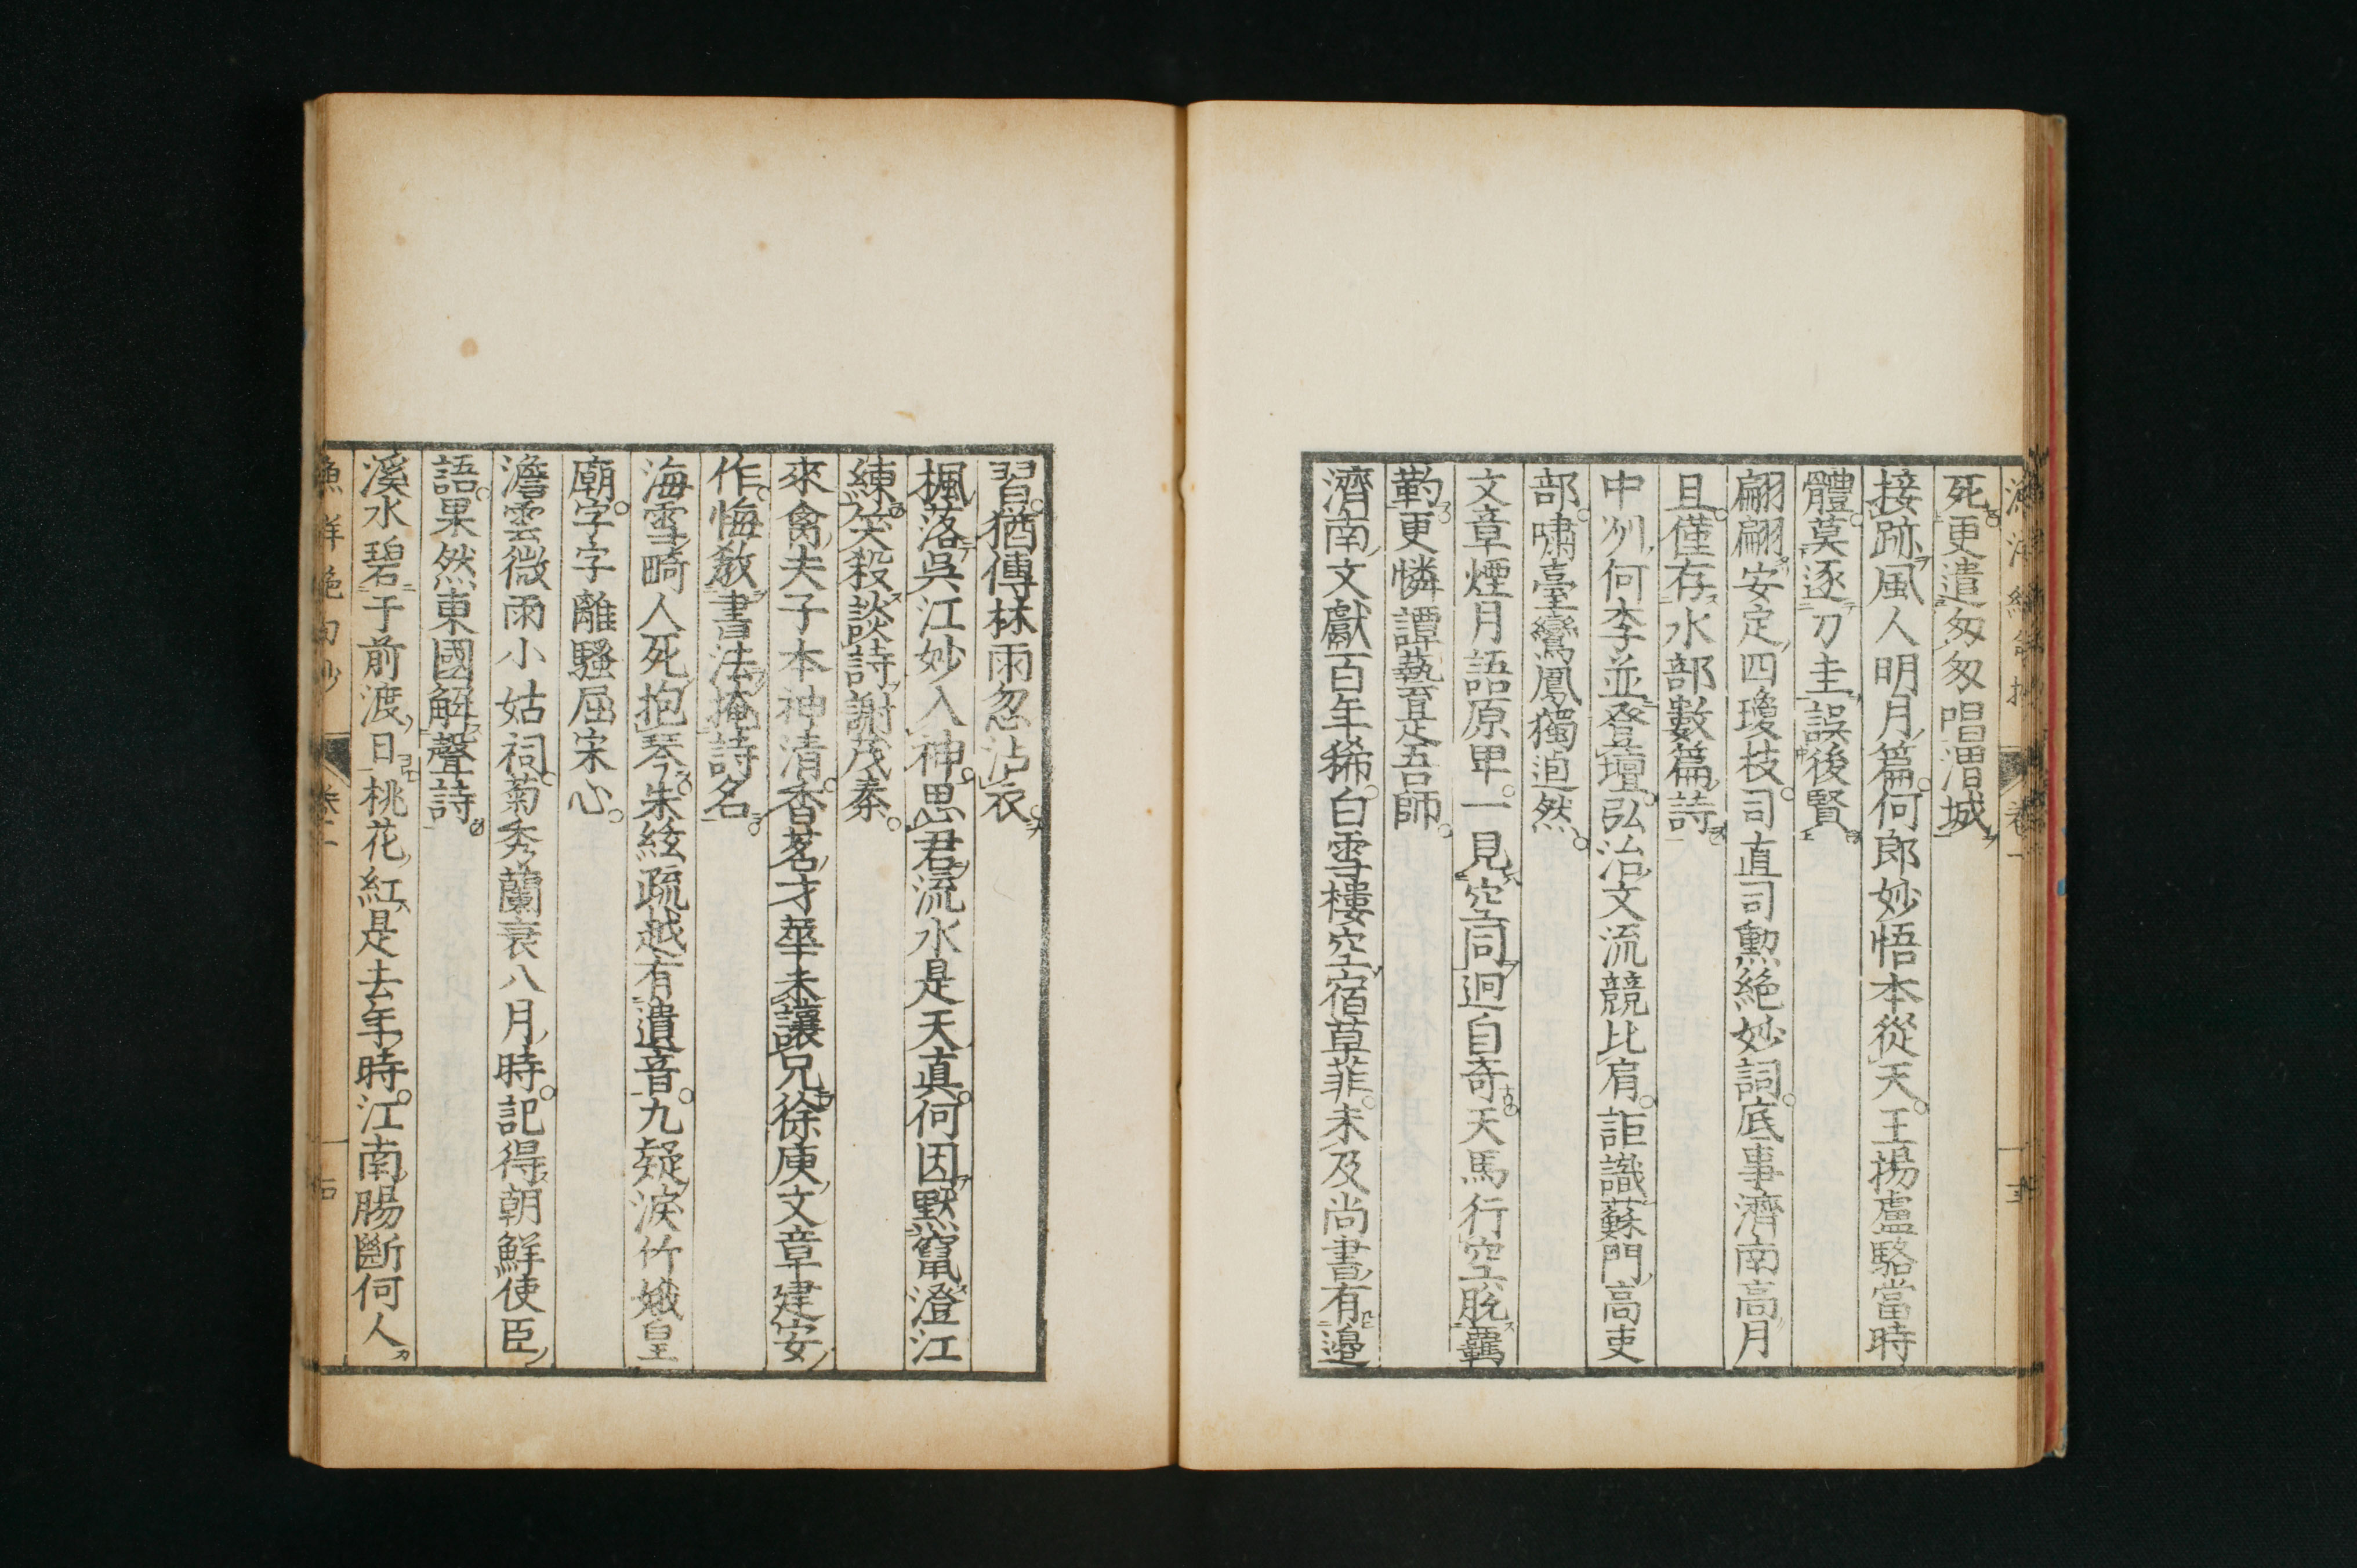 死更遣匆匆唱渭城
接跡風人明月篇何郎妙悟本從天王揚盧駱當時
體莫逐刀圭誤後賢
翩翩安定四瓊枝司直司勲絶妙詞底事濟南高月
旦僅存水部數篇詩
中州何李並登壇弘治文流競比肩詎識蘇門高吏
部嘯臺鸞鳳獨逈然
文章煙月語原卑一見空同迥自奇天馬行空脱羈
靮更憐譚藝是吾師
濟南文獻百年稀白雪樓空宿草菲未及尚書有邉
習猶傳林雨忽沾衣
楓落吳江妙入神思君流水是天真何因黙竄澄江
練笑殺談詩謝茂秦
來禽夫子本神清香茗才華未讓兄徐庾文章建安
作悔敎書法掩詩名
海雪畸人死抱琴朱絃疏越有遺音九疑淚竹娥皇
廟字字離騷屈宋心
澹雲微雨小姑祠菊秀蘭衰八月時記得朝鮮使臣
語果然東國解聲詩
溪水碧于前渡日桃花紅是去年時江南腸斷何人
漁洋絶句抄 卷一